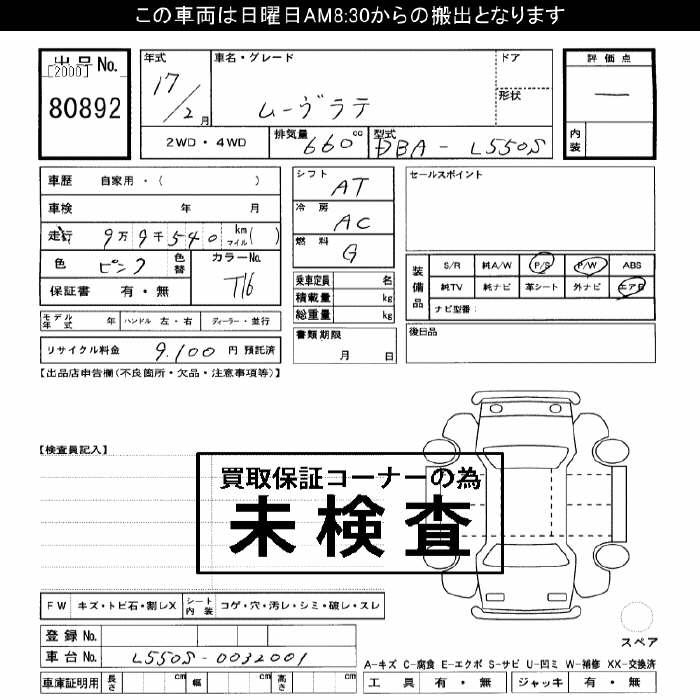 この車両は日曜日AM8:30からの搬出となります
出品No.
[2000]
80892
年式
17/2月
車名・グレード
ムーヴラテ
ドア
形状
2WD・4WD
排気量
660cc
型式
DBA-L550S
評価点
―
内装
車歴 自家用・( )
車検 年 月
走行 9万9千540 km マイル( )
色 ピンク 色替
カラーNo.
T16
保証書 有・無
モデル年式 年 ハンドル 左・右 ディーラー・並行
リサイクル料金 9,100 円 預託済
シフト AT
冷房 AC
燃料 G
乗車定員 名
積載量 kg
総重量 kg
書類期限
月 日
セールスポイント
装備品
S/R 純A/W P/S P/W ABS
純TV 純ナビ 革シート 外ナビ エアB
ナビ型番:
後日品
【出品店申告欄(不良個所・欠品・注意事項等)】
【検査員記入】
買取保証コーナーの為
未検査
FW キズ・トビ石・割レX シート内装 コゲ・穴・汚レ・シミ・破レ・スレ
登録No.
車台No. L550S-0032001
車庫証明用 長さ cm 幅 cm 高さ cm
スペア
A-キズ C-腐食 E-エクボ S-サビ U-凹ミ W-補修 XX-交換済
工具 有・無 ジャッキ 有・無